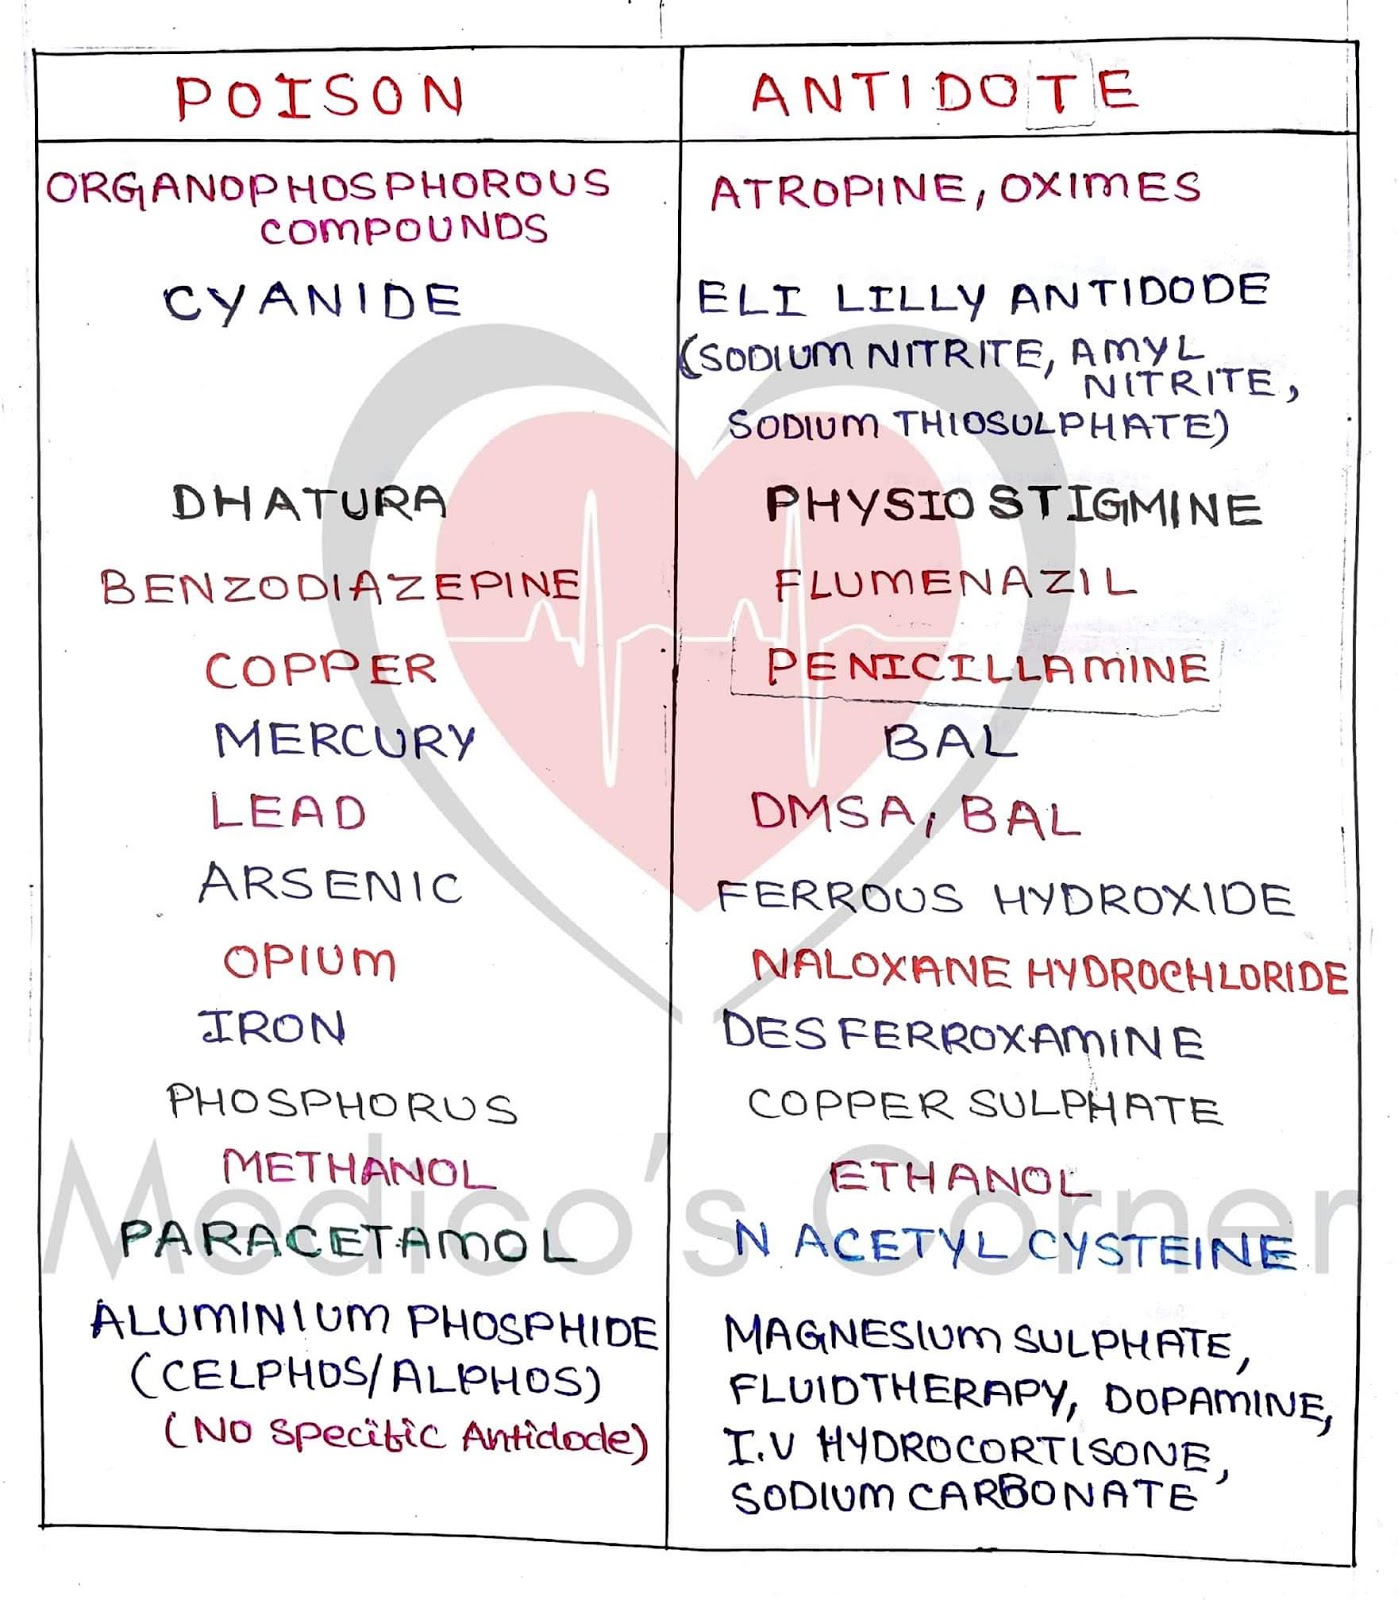 POISON ANTIDOTE
ORGANOPHOSPHOROUS ATROPINE, OXIMES
COMPOUNDS
CYANIDE ELI LILLY ANTIDODE
(SODIUM NITRITE, AMYL
NITRITE,
SODIUM THIOSULPHATE)
DHATURA PHYSIOSTIGMINE
BENZODIAZEPINE FLUMENAZIL
COPPER PENICILLAMINE
MERCURY BAL
LEAD DMSA, BAL
ARSENIC FERROUS HYDROXIDE
OPIUM NALOXANE HYDROCHLORIDE
IRON DESFERROXAMINE
PHOSPHORUS COPPER SULPHATE
METHANOL ETHANOL
Medico's Corner
PARACETAMOL N ACETYL CYSTEINE
ALUMINIUM PHOSPHIDE MAGNESIUM SULPHATE,
(CELPHOS/ALPHOS) FLUIDTHERAPY, DOPAMINE,
(No Specific Antidode) I.V HYDROCORTISONE,
SODIUM CARBONATE